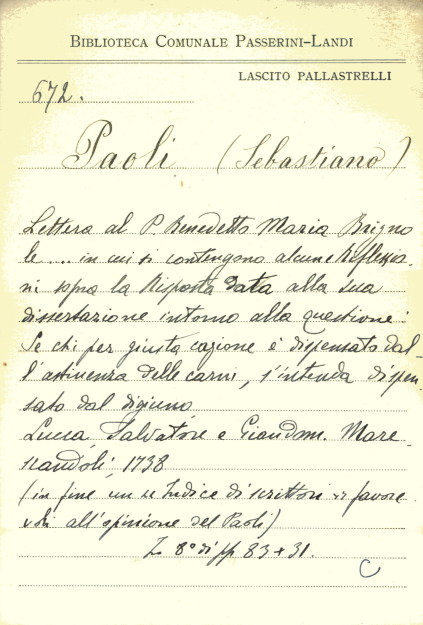 BIBLIOTECA COMUNALE PASSERINI-LANDI
LASCITO PALLASTRELLI
672.
Paoli (Sebastiano)
Lettera al P. Benedetto Maria Brigno
le .... in cui si contengono alcune Riflessio.
ni sopra la Risposta data alla sua
dissertazione intorno alla questione:
Se chi per giusta cagione è dispensato dal-
l'astinenza delle carni, s'intenda dispen-
sato dal digiuno
Lucca, Salvatore e Giandom. Mare-
scandoli, 1738
(in fine un Indice di scrittori favore
voli all'opinione del Paoli)
8° di pp 83 + 31.
C